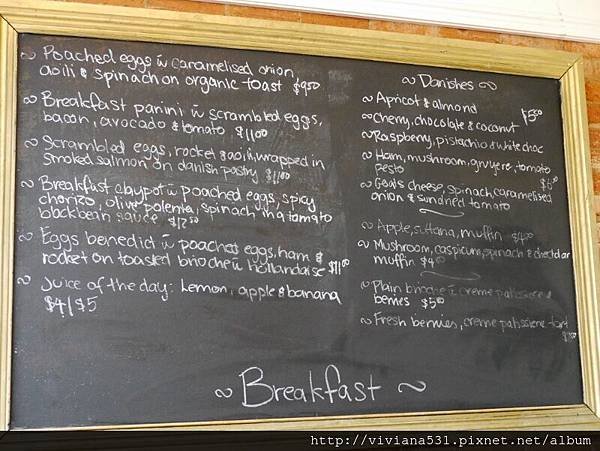 ~ Poached eggs w caramelised onion,
aoili & spinach on organic toast $9.50
~ Breakfast panini w scrambled eggs,
bacon, avocado & tomato $11.00
~ Scrambled eggs, rocket & aoili, wrapped in
smoked salmon on danish pastry $11.00
~ Breakfast claypot w poached eggs, spicy
chorizo, olive polenta, spinach, in a tomato
blackbean sauce $12.50
~ Eggs benedict w poached eggs, ham &
rocket on toasted brioche w hollandaise $11.00
~ Juice of the day: Lemon, apple & banana
$4/$5
~ Danishes ~
~ Apricot & almond
~ Cherry, chocolate & coconut $5.00
~ Raspberry, pistachio & white choc
~ Ham, mushroom, gruyere, tomato
pesto
~ Goats cheese, spinach, caramelised
onion & sundried tomato
~ Apple, sultana, muffin $4.00
~ Mushroom, caspicum, spinach & cheddar
muffin $4.00
~ Plain brioche w creme patissiere &
berries $5.00
~ Fresh berries, creme patissiere tart
~ Breakfast ~
http://viviana531.pixnet.net/album